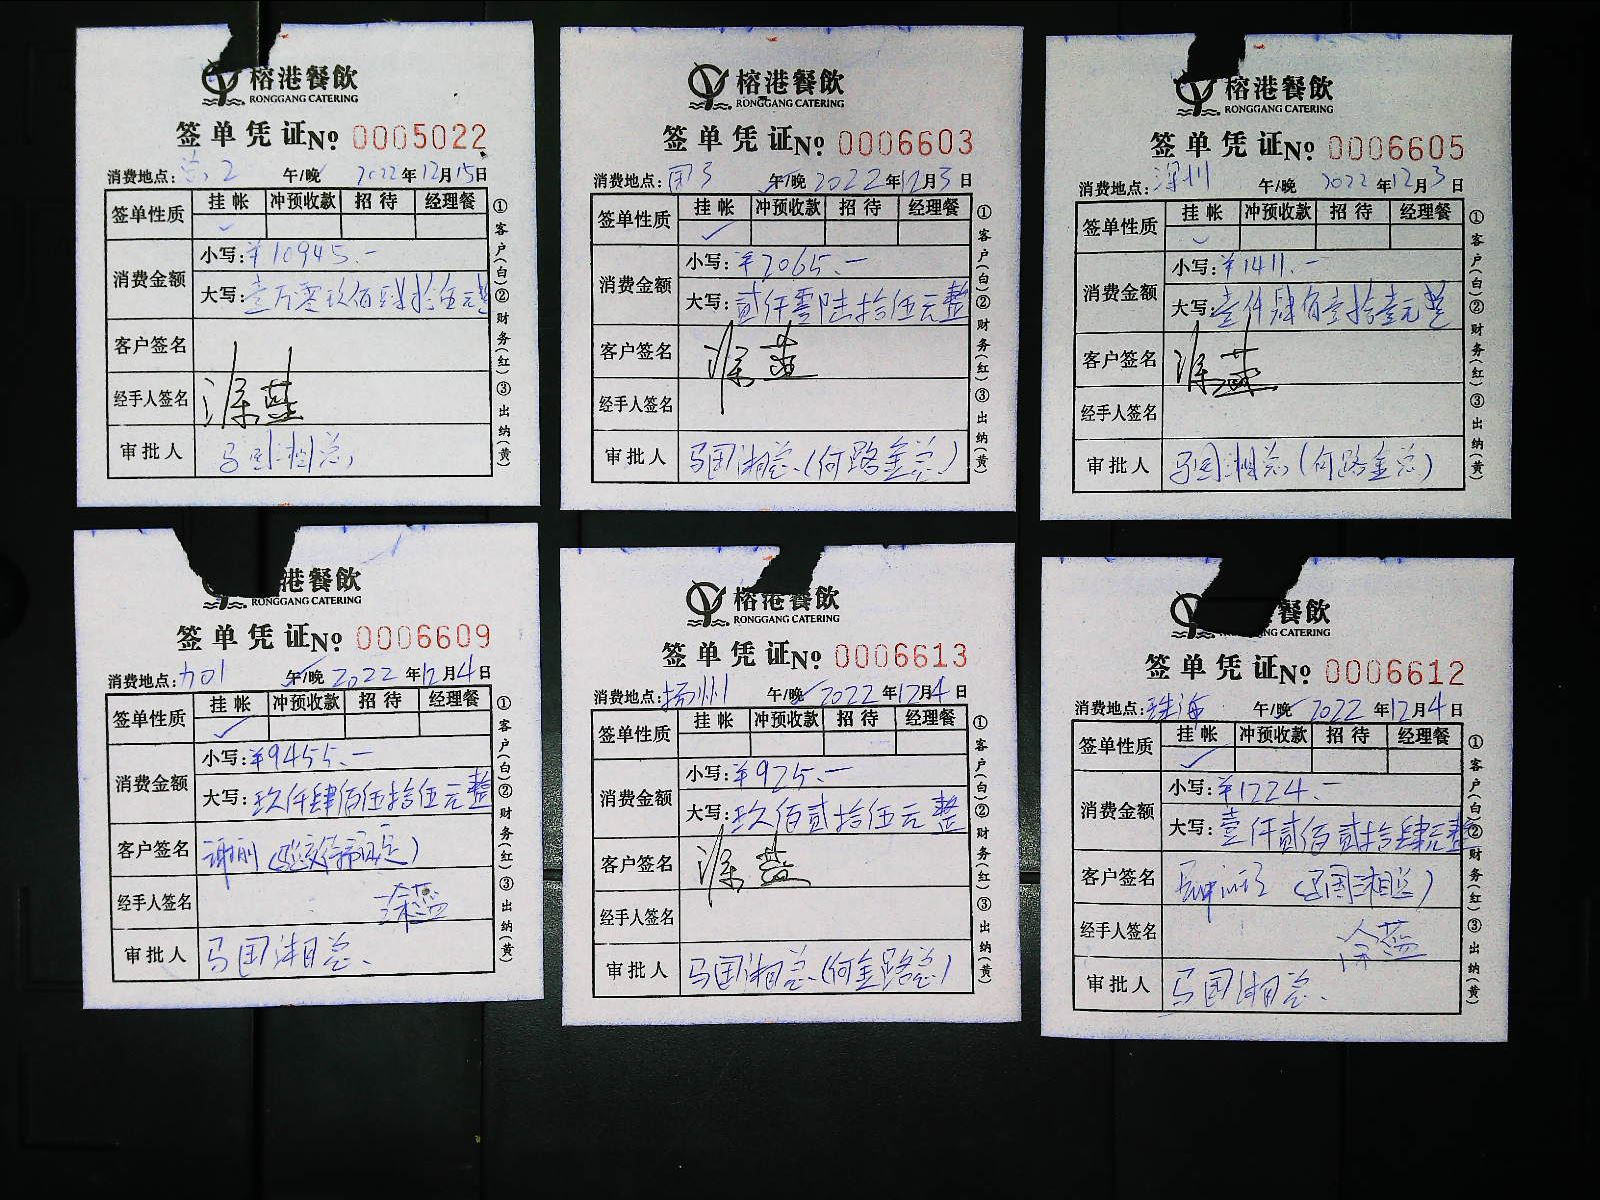 榕港餐飲
RONGGANG CATERING
签单凭证No 0005022
消费地点: 午/晚 2022年12月15日
签单性质 挂帐 冲预收款 招待 经理餐
消费金额 小写:¥10945.-
大写:壹万零玖佰肆拾伍元整
客户签名
经手人签名
审批人 马国湘总
①客户(白)②财务(红)③出纳(黄)
榕港餐飲
RONGGANG CATERING
签单凭证No 0006603
消费地点: 午/晚 2022年12月3日
签单性质 挂帐 冲预收款 招待 经理餐
消费金额 小写:¥2065.-
大写:贰仟零陆拾伍元整
客户签名
经手人签名
审批人 马国湘总(何路金总)
①客户(白)②财务(红)③出纳(黄)
榕港餐飲
RONGGANG CATERING
签单凭证No 0006605
消费地点:深圳 午/晚 2022年12月3日
签单性质 挂帐 冲预收款 招待 经理餐
消费金额 小写:¥1411.-
大写:壹仟肆佰壹拾壹元整
客户签名
经手人签名
审批人 马国湘总(何路金总)
①客户(白)②财务(红)③出纳(黄)
港餐飲
RONGGANG CATERING
签单凭证No 0006609
消费地点: 午/晚 2022年12月4日
签单性质 挂帐 冲预收款 招待 经理餐
消费金额 小写:¥9455.-
大写:玖仟肆佰伍拾伍元整
客户签名
经手人签名
审批人 马国湘总
①客户(白)②财务(红)③出纳(黄)
榕港餐飲
RONGGANG CATERING
签单凭证No 0006613
消费地点:扬州 午/晚 2022年12月4日
签单性质 挂帐 冲预收款 招待 经理餐
消费金额 小写:¥925.-
大写:玖佰贰拾伍元整
客户签名
经手人签名
审批人 马国湘总(何金路总)
①客户(白)②财务(红)③出纳(黄)
餐飲
RONGGANG CATERING
签单凭证No 0006612
消费地点:珠海 午/晚 2022年12月4日
签单性质 挂帐 冲预收款 招待 经理餐
消费金额 小写:¥1224.-
大写:壹仟贰佰贰拾肆元整
客户签名 (马国湘总)
经手人签名
审批人 马国湘总
①客户(白)②财务(红)③出纳(黄)